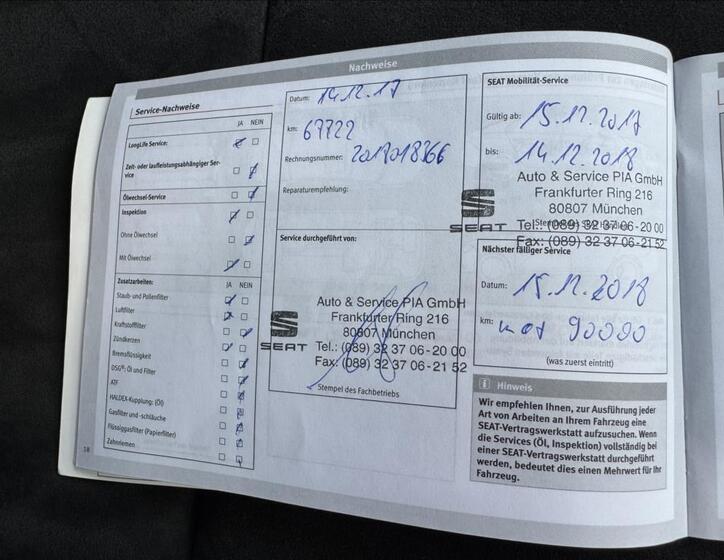 Nachweise
Service-Nachweise
JA NEIN
LongLife Service:
Zeit- oder laufleistungsabhängiger Ser-
vice
Ölwechsel-Service
Inspektion
Ohne Ölwechsel
Mit Ölwechsel
Zusatzarbeiten: JA NEIN
Staub- und Pollenfilter
Luftfilter
Kraftstofffilter
Zündkerzen
Bremsflüssigkeit
DSG®: Öl und Filter
ATF
HALDEX-Kupplung: (Öl)
Gasfilter und -schläuche
Flüssiggasfilter (Papierfilter)
Zahnriemen
18
Datum: 14.12.17
km: 67722
Rechnungsnummer: 2017018366
Reparaturempfehlung:
Service durchgeführt von:
SEAT
Auto & Service PIA GmbH
Frankfurter Ring 216
80807 München
Tel.: (089) 32 37 06-20 00
Fax: (089) 32 37 06-21 52
Stempel des Fachbetriebs
SEAT Mobilität-Service
Gültig ab: 15.12.2017
bis: 14.12.2018
SEAT
Auto & Service PIA GmbH
Frankfurter Ring 216
80807 München
Tel.: (089) 32 37 06-20 00
Fax: (089) 32 37 06-21 52
Nächster fälliger Service
Datum: 15.12.2018
km: 90000
(was zuerst eintritt)
i Hinweis
Wir empfehlen Ihnen, zur Ausführung jeder
Art von Arbeiten an Ihrem Fahrzeug eine
SEAT-Vertragswerkstatt aufzusuchen. Wenn
die Services (Öl, Inspektion) vollständig bei
einer SEAT-Vertragswerkstatt durchgeführt
werden, bedeutet dies einen Mehrwert für Ihr
Fahrzeug.